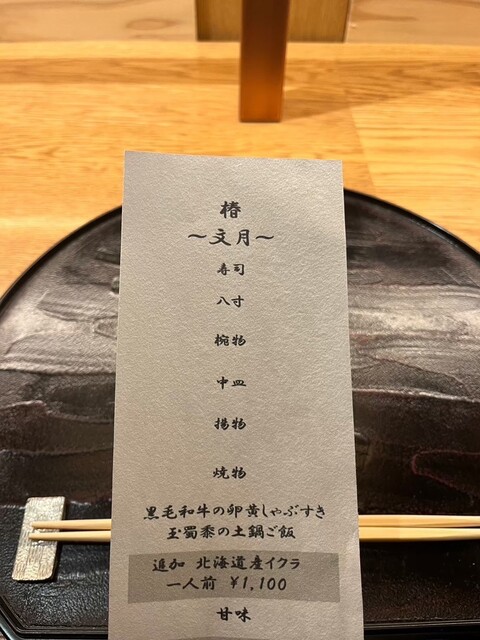 椿
～文月～
寿司
八寸
椀物
中皿
揚物
焼物
黒毛和牛の卵黄しゃぶすき
玉蜀黍の土鍋ご飯
追加 北海道産イクラ
一人前 ¥1,100
甘味